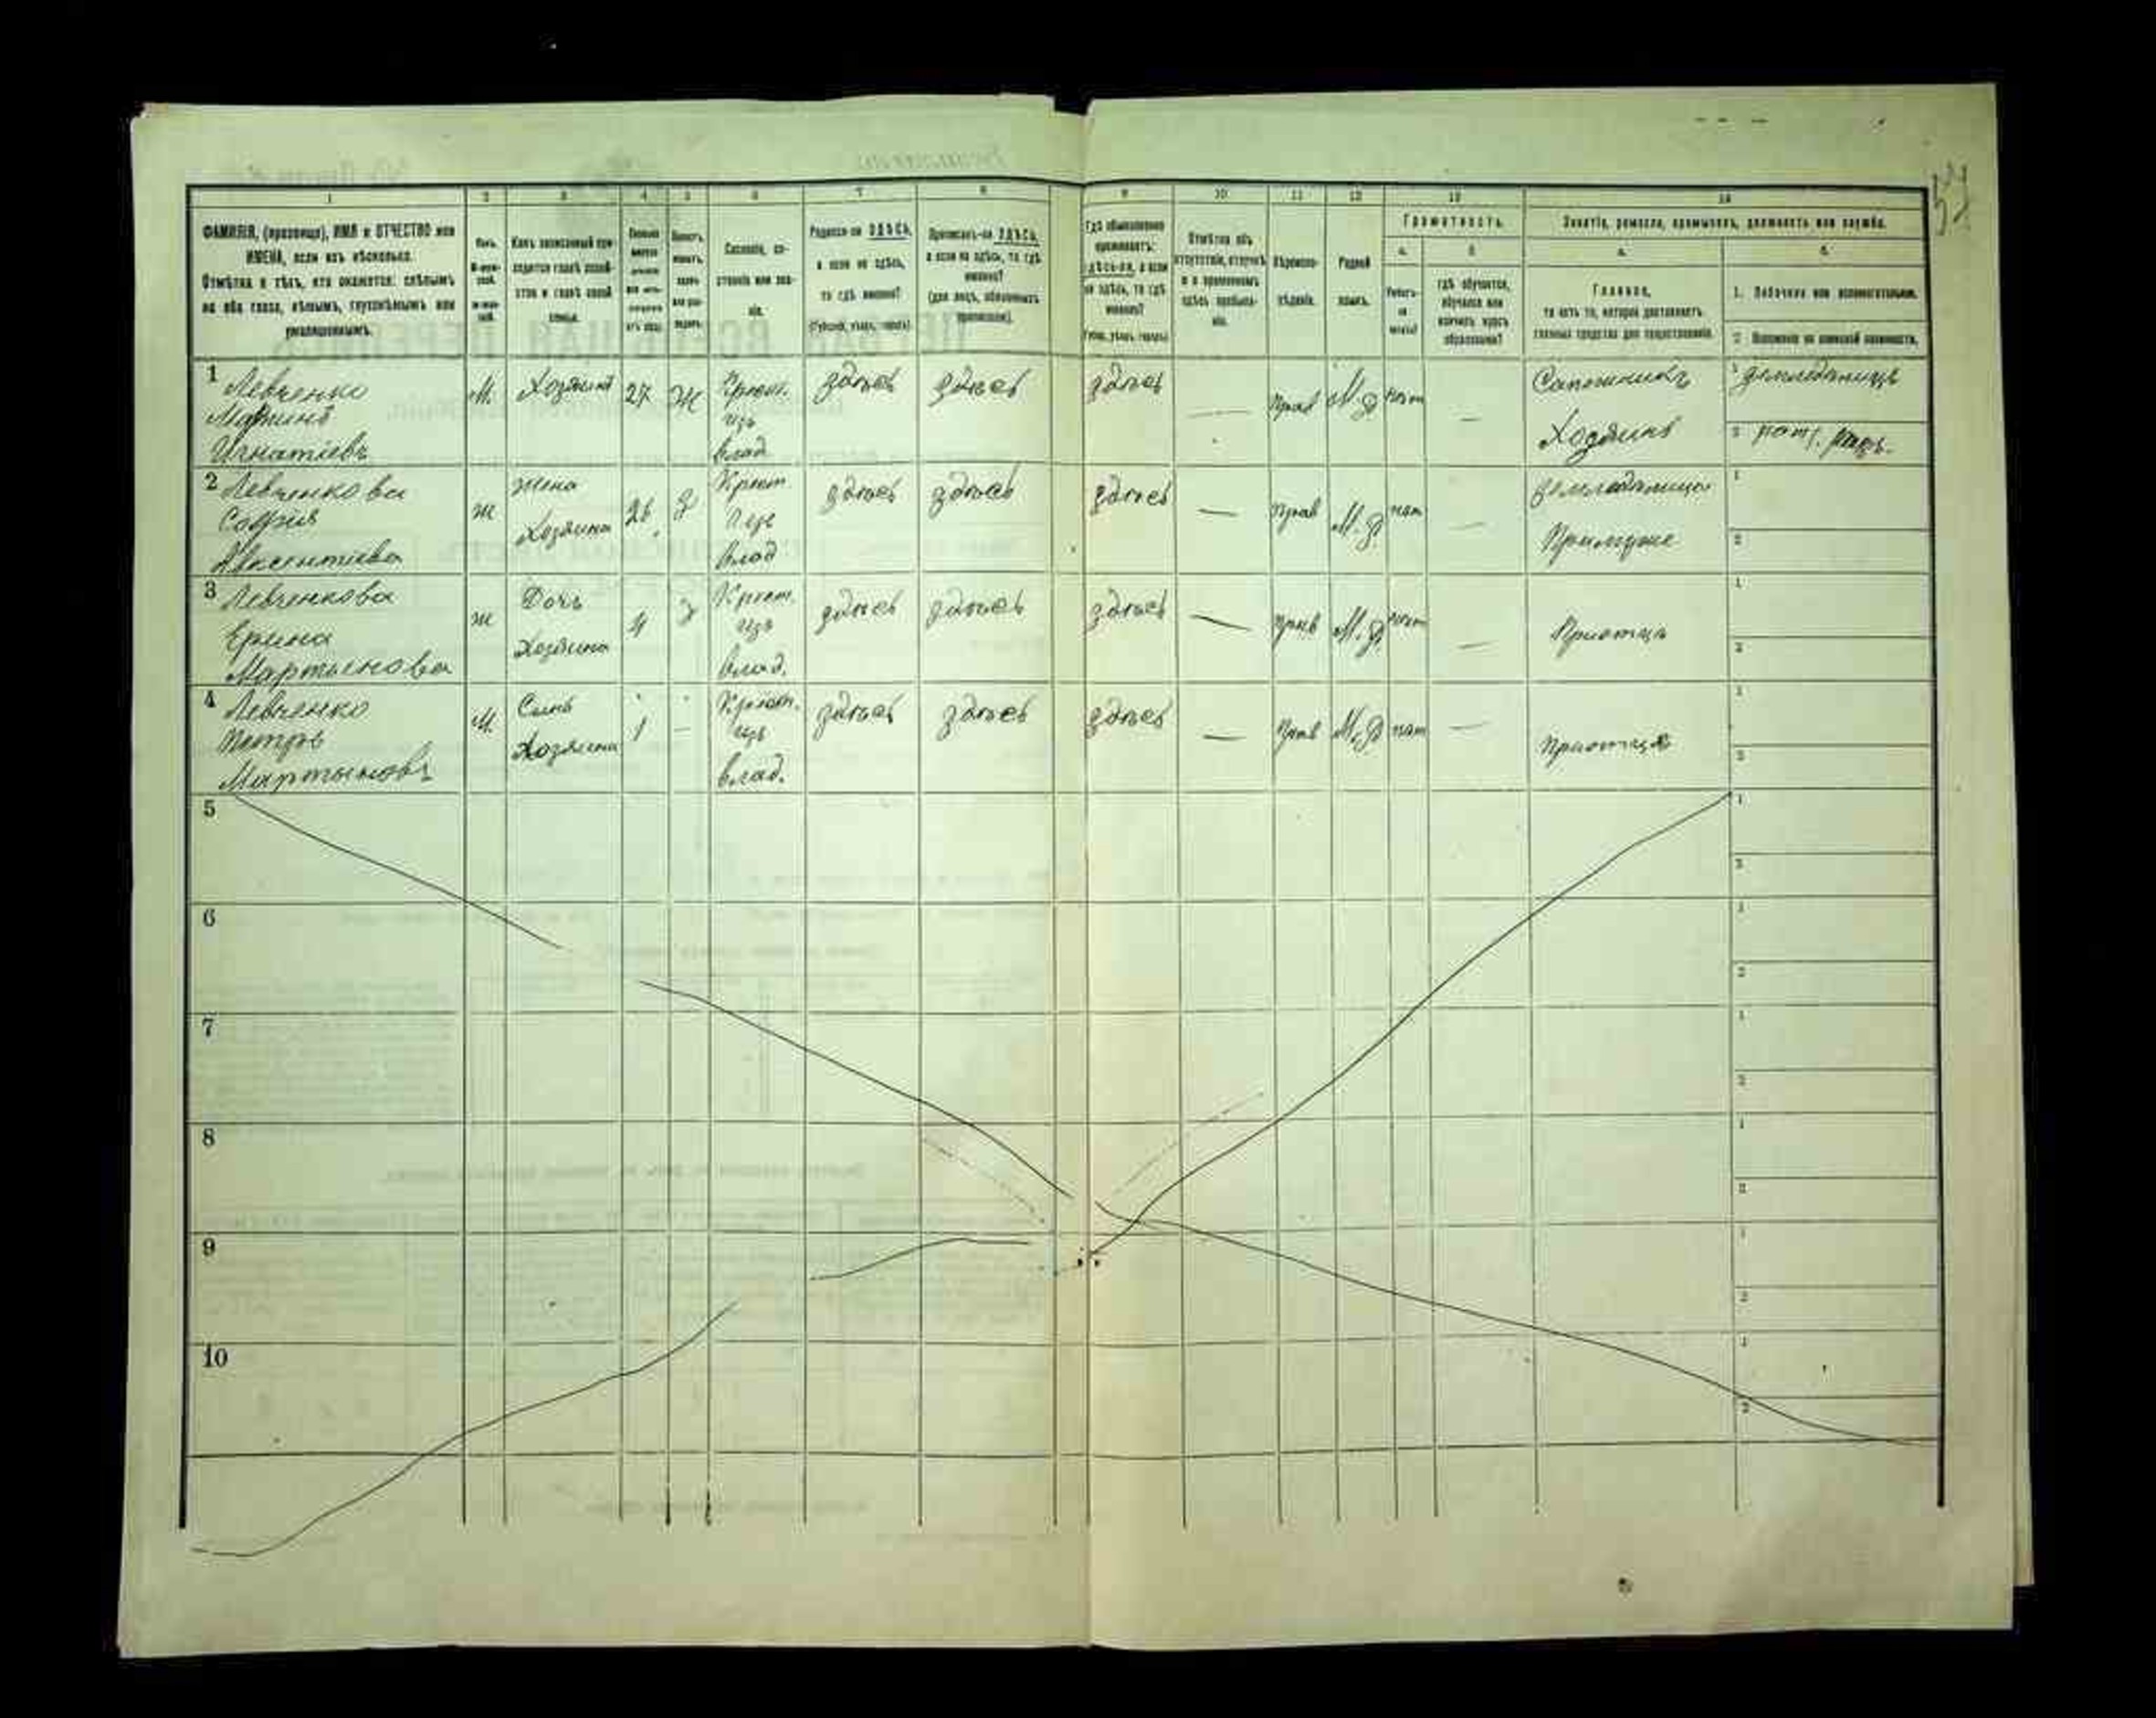 1 2 3 4 5 6 7 8 9 10 11 12 13 14
ФАМИЛІЯ, (прозвище), ИМЯ и ОТЧЕСТВО или
ИМЕНА, если ихъ нѣсколько.
Отмѣтка о тѣхъ, кто окажется: слѣпымъ
на оба глаза, нѣмымъ, глухонѣмымъ или
умалишеннымъ.
Какъ записанный при-
ходится главѣ хозяй-
ства и главѣ своей
семьи.
Сословіе, со-
стояніе или зва-
ніе.
Родился-ли ЗДѢСЬ,
а если не здѣсь,
то гдѣ именно?
(Губернія, уѣздъ, городъ)
Приписанъ-ли ЗДѢСЬ,
а если не здѣсь, то гдѣ
именно?
(для лицъ, обязанныхъ
припискою).
Гдѣ обыкновенно
проживаетъ:
здѣсь-ли, а если
не здѣсь, то гдѣ
именно?
Отмѣтка объ
отсутствіи, отлучкѣ
и о временномъ
здѣсь пребыва-
ніи.
Вѣроиспо-
вѣданіе.
Родной
языкъ.
Грамотность.
а. б.
Умѣетъ-
ли
читать?
гдѣ обучается,
обучался или
кончилъ курсъ
образованія?
Занятіе, ремесло, промыселъ, должность или служба.
а. б.
Главное,
то есть то, которое доставляетъ
главныя средства для существованія.
1. Побочное или вспомогательное.
2. Положеніе по воинской повинности.
1 Левченко М. Хозяинъ 27 Ж Крест. здѣсь здѣсь здѣсь — Прав М.Р. нѣт — Сапожникъ 1 земледѣлецъ
Игнатіевъ изъ влад. Хозяинъ 2
2 Левченкова ж жена 26 З Крест. здѣсь здѣсь здѣсь — Прав М.Р. нѣт — земледѣлица 1
София Хозяина изъ При муже 2
Авксентіева влад
3 Левченкова ж Дочь 4 Крест. здѣсь здѣсь здѣсь — Прав М.Р. нѣт — При отцѣ 1
Ерина Хозяина изъ 2
Мартынова влад.
4 Левченко М. Сынъ 1 — Крест. здѣсь здѣсь здѣсь — Прав М.Р. нѣт — При отцѣ 1
Петръ Хозяина изъ 2
Мартыновъ влад.
5 1
2
6 1
2
7 1
2
8 1
2
9 1
2
10 1
2